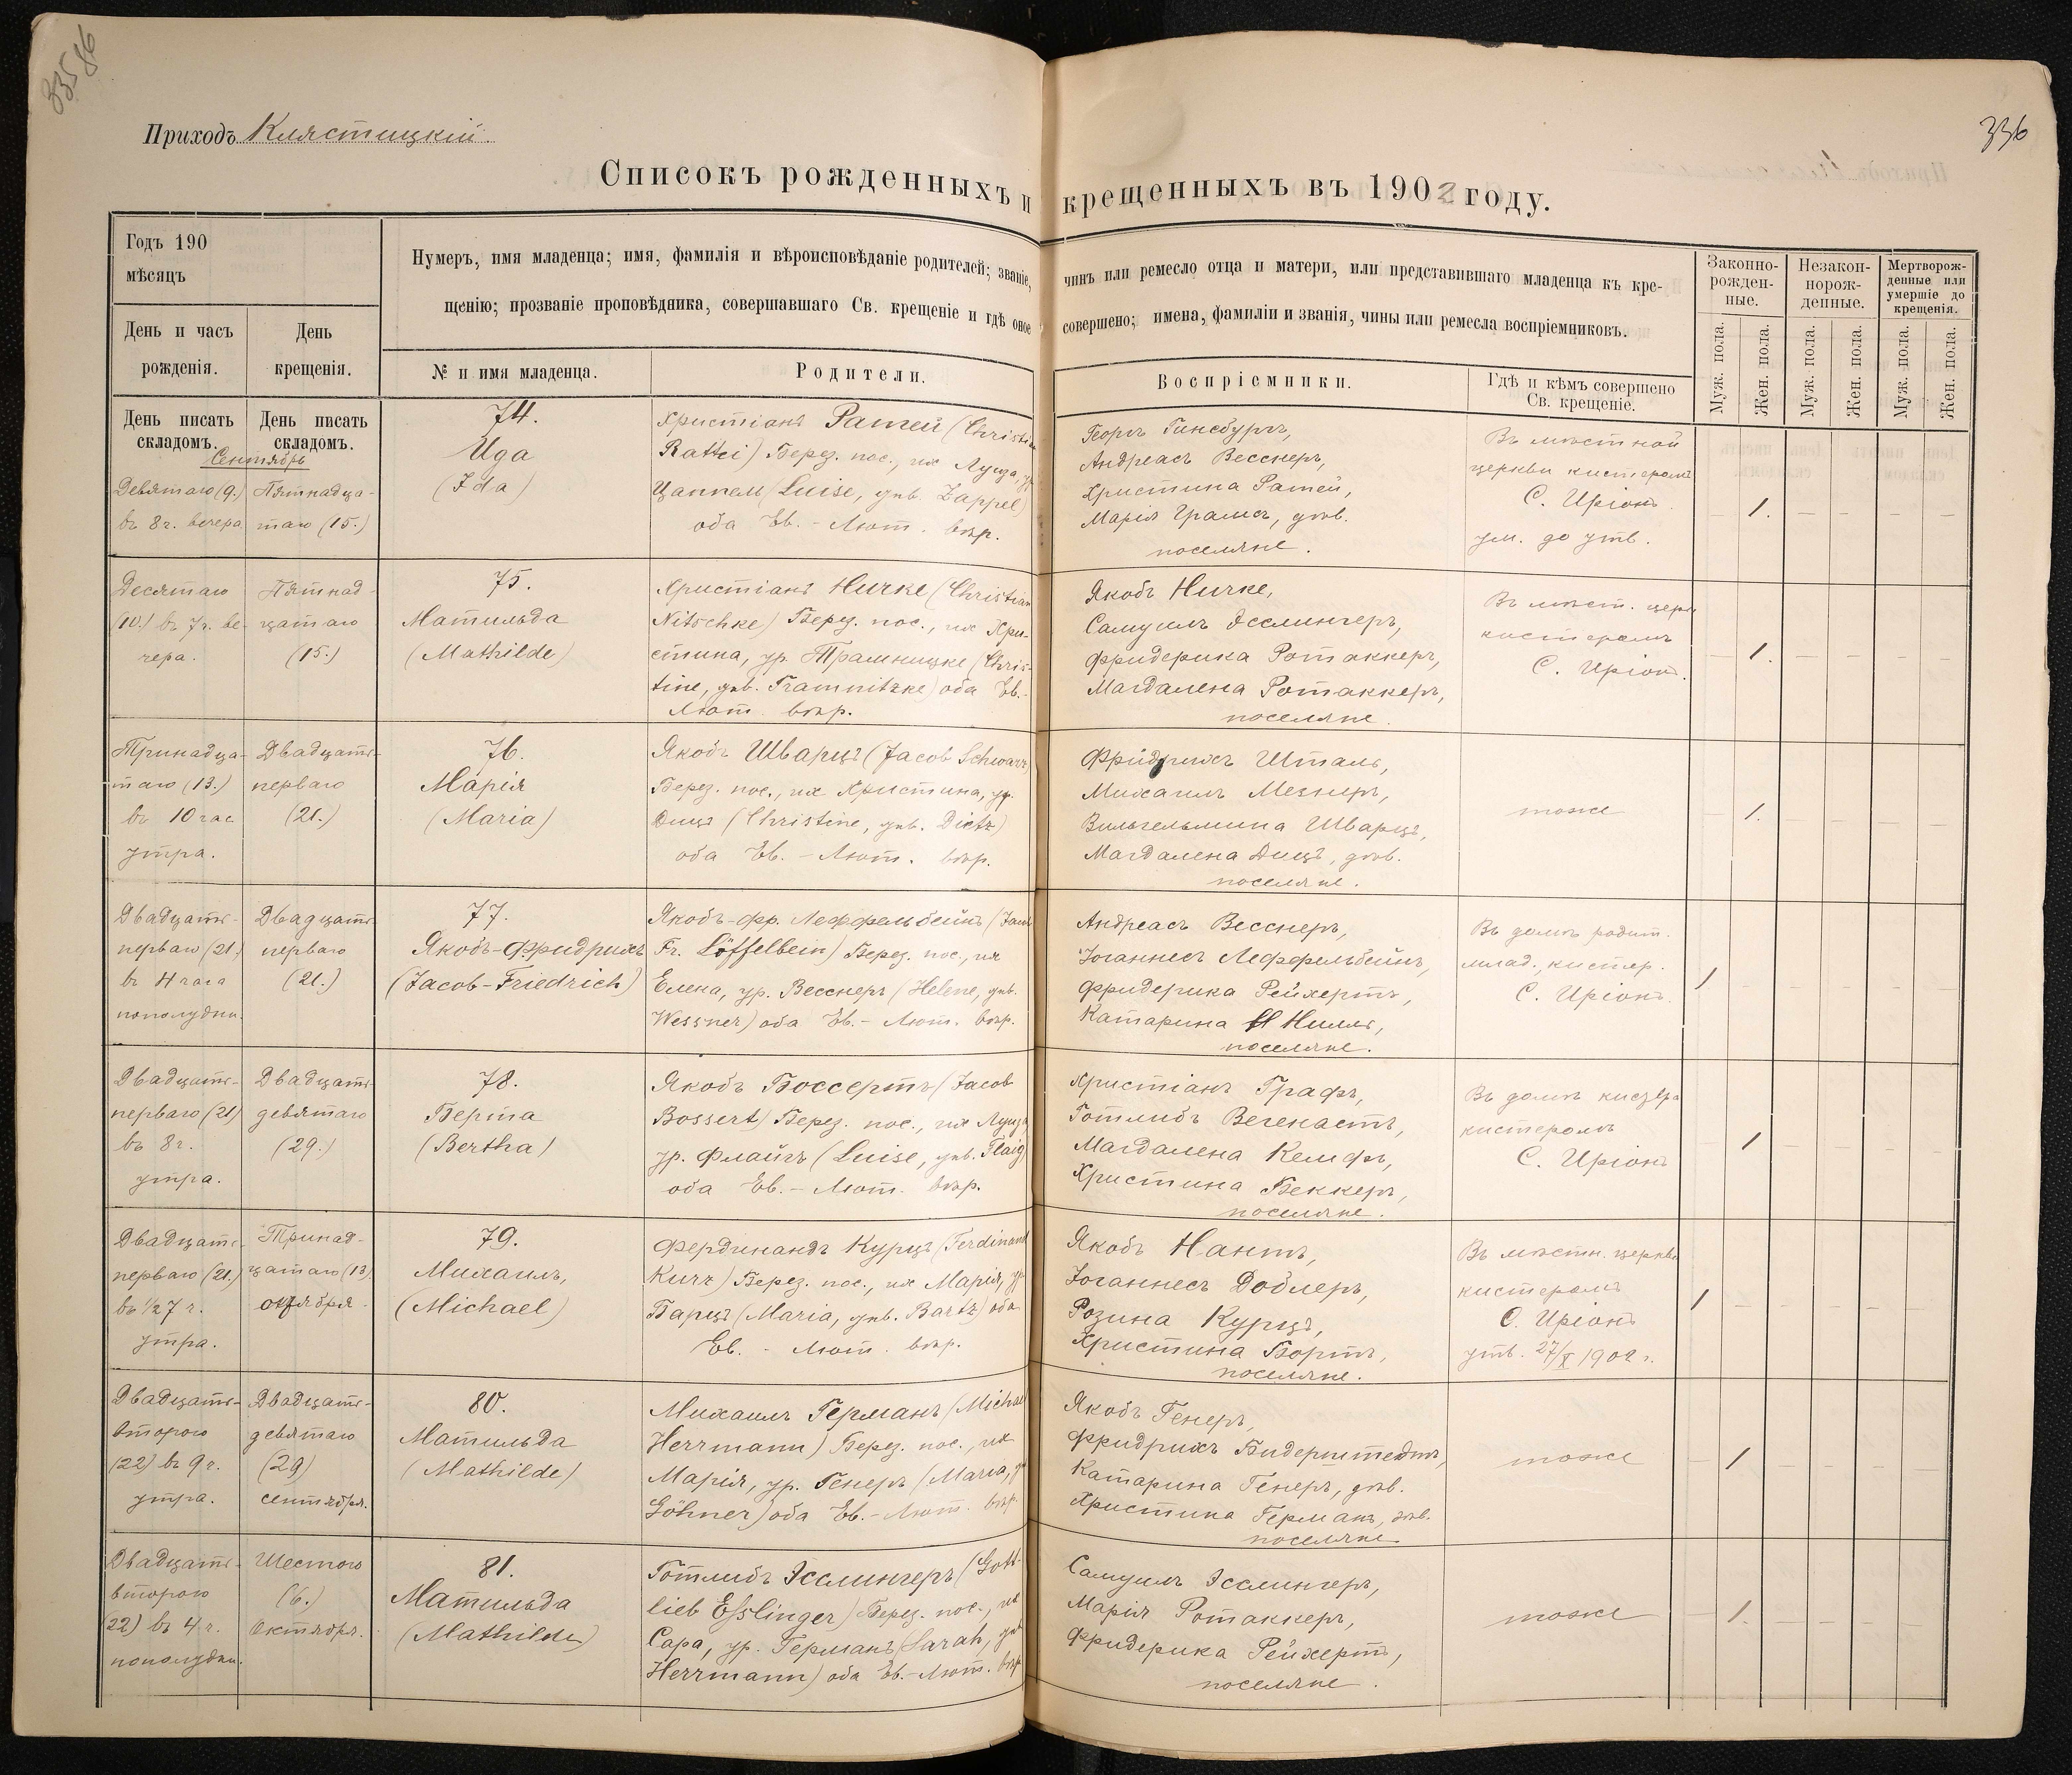 33586
336
Приходъ Клястицкій.
Списокъ рожденныхъ и крещенныхъ въ 1902 году.
Годъ 190
мѣсяцъ
День и часъ рожденія.
День крещенія.
Нумеръ, имя младенца; имя, фамилія и вѣроисповѣданіе родителей; званіе, чинъ или ремесло отца и матери, или представившаго младенца къ кре-
щенію; прозваніе проповѣдника, совершавшаго Св. крещеніе и гдѣ оное совершено; имена, фамиліи и званія, чины или ремесла воспріемниковъ.
№ и имя младенца.
Родители.
Воспріемники.
Гдѣ и кѣмъ совершено
Св. крещеніе.
Законно-
рожден-
ные.
Незакон-
норож-
денные.
Мертворож-
денные или
умершіе до
крещенія.
Муж. пола.
Жен. пола.
Муж. пола.
Жен. пола.
Муж. пола.
Жен. пола.
День писать
складомъ.
День писать
складомъ.
Сентябрь
Девятаго (9.)
въ 8 ч. вечера
Пятнадца-
таго (15.)
74.
Ида
(Ida)
Христіанъ Ратей (Christian
Rattei) Берез. пос., их Луиза, ур.
Цаппель (Luise, урв. Zappel)
оба Ев. - Лют. вѣр.
Георгъ Гинсбургъ,
Андреасъ Весснеръ,
Христина Ратей,
Марія Грамсъ, дѣв.
поселяне.
Въ мѣстной
церкви кистеромъ
С. Иріонъ.
ум. до утв.
1.
Десятаго
(10.) въ 7 ч. ве-
чера.
Пятнад-
цатаго
(15.)
75.
Матильда
(Mathilde)
Христіанъ Ничке (Christian
Nitschke) Берез. пос., их Хри-
стина, ур. Трамницке (Chris-
tine, урв. Tramnitzke) оба Ев.-
Лют. вѣр.
Якобъ Ничке,
Самуилъ Эсслингеръ,
Фридерика Ротаккеръ,
Магдалена Ротаккеръ,
поселяне.
Въ мѣст. церк.
кистеромъ
С. Иріонъ.
1.
Тринадца-
таго (13.)
въ 10 час.
утра.
Двадцать-
перваго
(21.)
76.
Марія
(Maria)
Якобъ Шварцъ (Jacob Schwarz)
Берез. пос., их Христина, ур.
Дицъ (Christine, урв. Dietz)
оба Ев. - Лют. вѣр.
Фридрихъ Шталь,
Михаилъ Мезнеръ,
Вильгельмина Шварцъ,
Магдалена Дицъ, дѣв.
поселяне.
тоже
1.
Двадцать-
перваго (21.)
въ 4 часа
пополудни.
Двадцать
перваго
(21.)
77.
Якобъ-Фридрихъ
(Jacob-Friedrich)
Якобъ-Фр. Леффельбейнъ (Jacob
Fr. Löffelbein) Берез. пос., их
Елена, ур. Весснеръ (Helene, урв.
Wessner) оба Ев. - Лют. вѣр.
Андреасъ Весснеръ,
Іоганнесъ Леффельбейнъ,
Фридерика Рейхертъ,
Катарина Нилль,
поселяне.
Въ домѣ родит.
млад. кистер.
С. Иріонъ.
1
Двадцать-
перваго (21)
въ 8 ч.
утра.
Двадцать-
девятаго
(29.)
78.
Берта
(Bertha)
Якобъ Боссертъ (Jacob
Bossert) Берез. пос., их Луиза
ур. Флайгъ (Luise, урв. Flaig)
оба Ев. - Лют. вѣр.
Христіанъ Графъ,
Готлибъ Вегенастъ,
Магдалена Кемфъ,
Христина Беккеръ,
поселяне.
Въ домѣ
кистеромъ
С. Иріонъ
1
Двадцать-
перваго (21.)
въ ½7 ч.
утра.
Тринад-
цатаго (13)
октября.
79.
Михаилъ,
(Michael)
Фердинандъ Курцъ (Ferdinand
Kurz) Берез. пос., их Марія, ур.
Барцъ (Maria, урв. Bartz) оба
Ев. - Лют. вѣр.
Якобъ Нантъ,
Іоганнесъ Доблеръ,
Розина Курцъ,
Христина Бортъ,
поселяне.
Въ мѣстн. церкви
кистеромъ
С. Иріонъ
утв. 27/X 1902 г.
1
Двадцать-
второго
(22) въ 9 ч.
утра.
Двадцать-
девятаго
(29)
сентября.
80.
Матильда
(Mathilde)
Михаилъ Германъ (Michael
Herrmann) Берез. пос., их
Марія, ур. Генеръ (Maria, ур.
Göhner) оба Ев. - Лют. вѣр.
Якобъ Генеръ,
Фридрихъ Бидерштедтъ,
Катарина Генеръ, дѣв.
Христина Германъ, дѣв.
поселяне
тоже
1
Двадцать-
второго
(22) въ 4 ч.
пополудни.
Шестого
(6.)
Октября.
81.
Матильда
(Mathilde)
Готлибъ Эсслингеръ (Gott-
lieb Esslinger) Берез. пос., их
Сара, ур. Германъ (Sarah, урв
Herrmann) оба Ев. - Лют. вѣр.
Самуилъ Эсслингеръ,
Марія Ротаккеръ,
Фридерика Рейхертъ,
поселяне.
тоже
1.